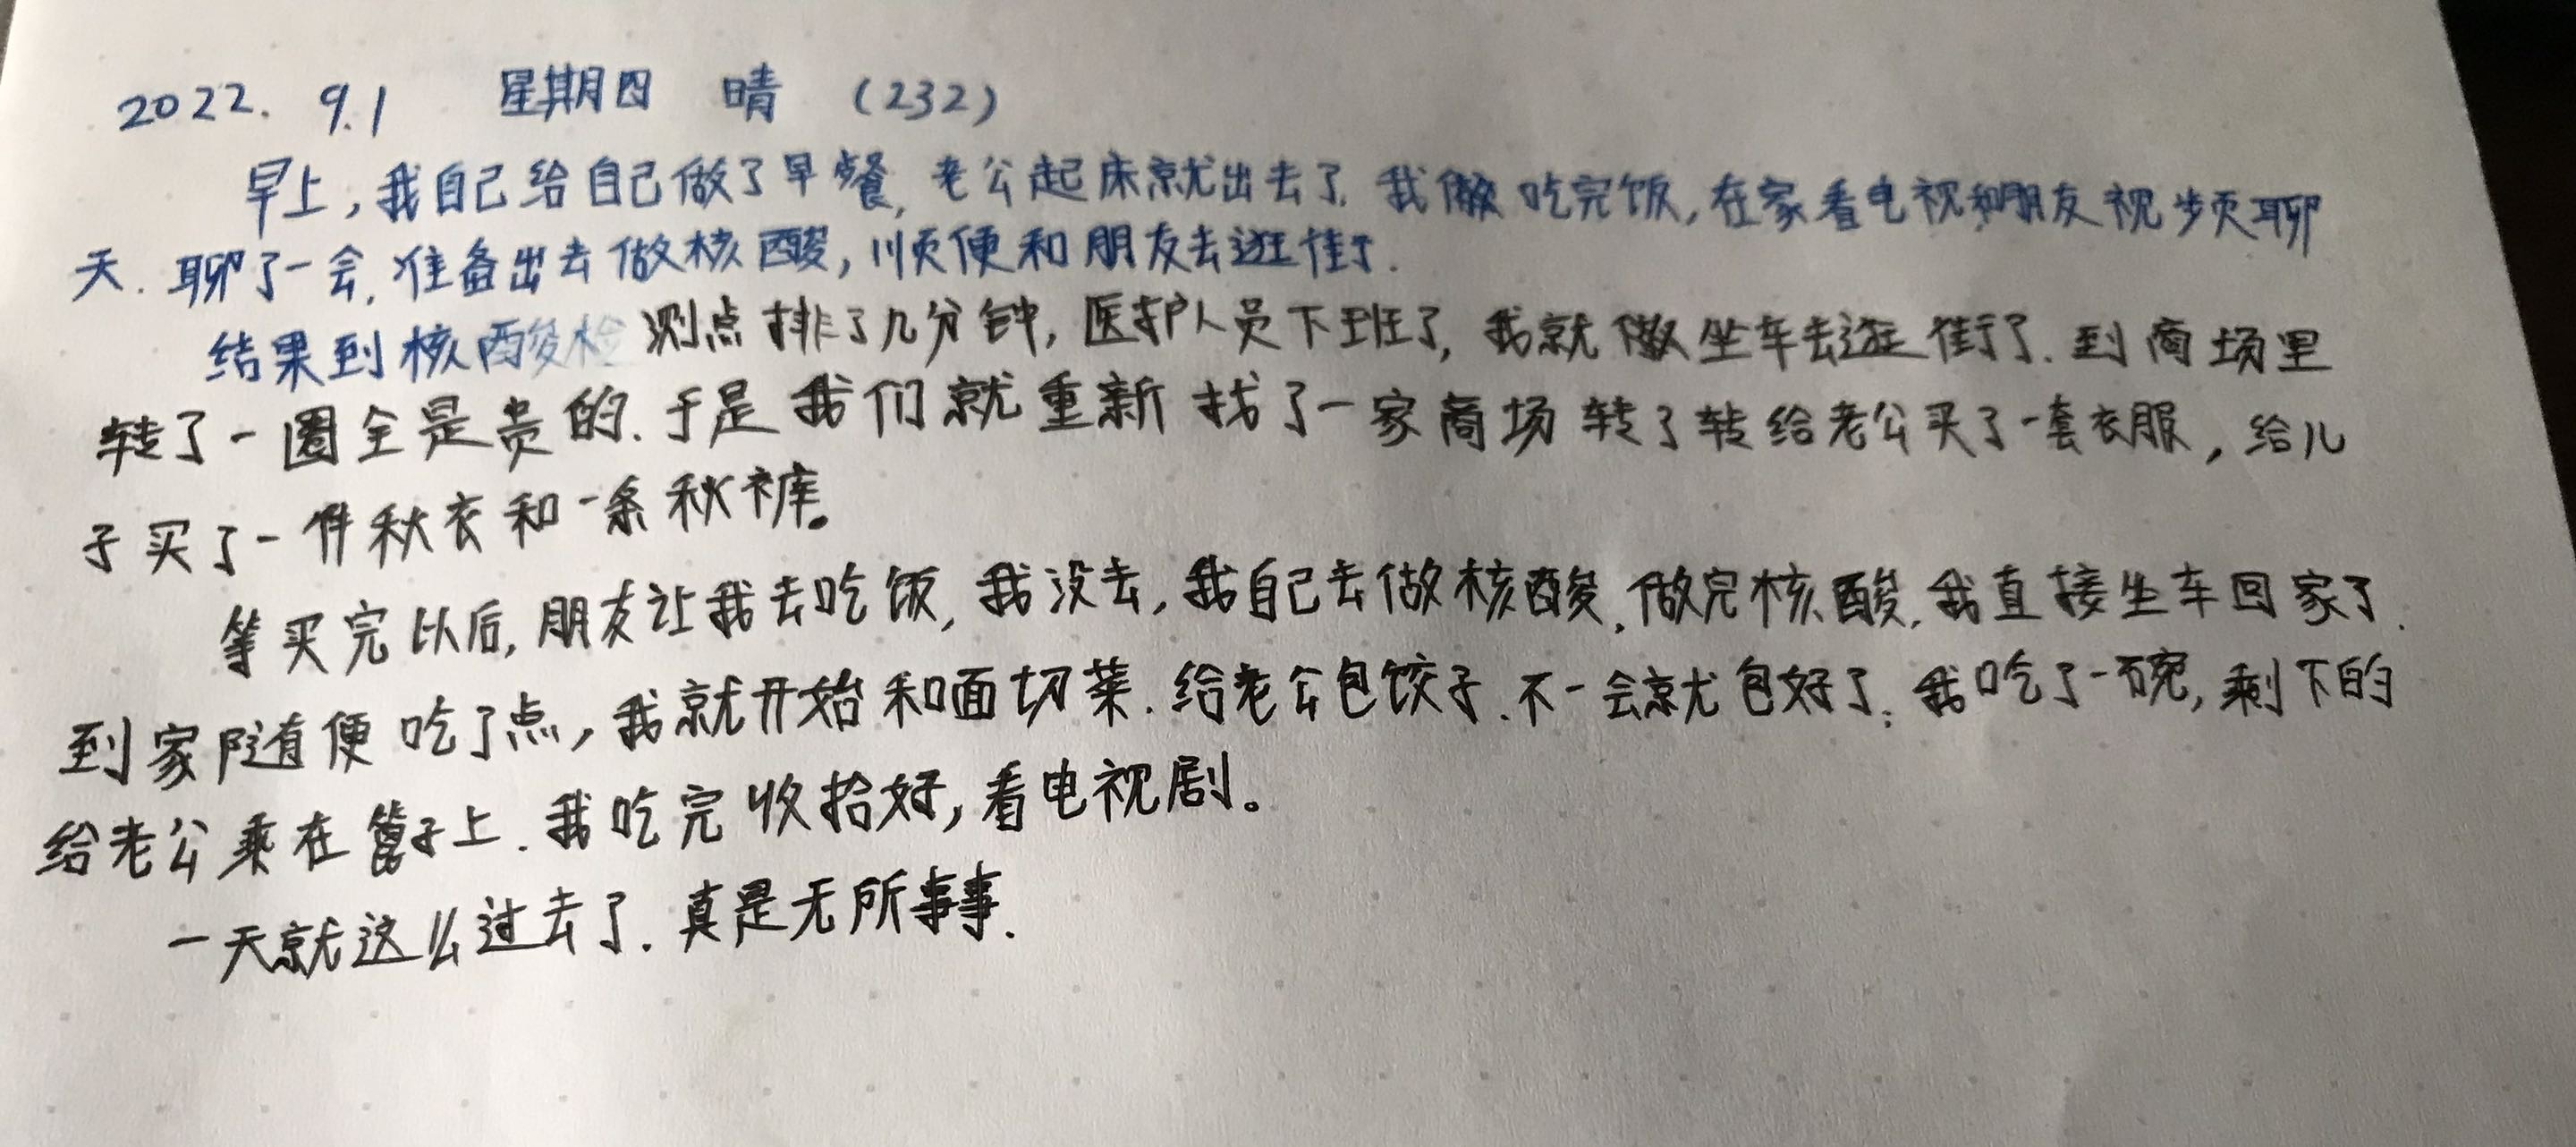 2022. 9.1 星期四 晴 (232)
早上,我自己给自己做了早餐,老公起床就出去了.我做吃完饭,在家看电视和朋友视步页聊
天.聊了一会,准备出去做核酸,顺便和朋友去逛街.
结果到核酸检测点排了几分钟,医护人员下班了,我就做坐车去逛街了.到商场里
转了一圈全是贵的.于是我们就重新找了一家商场转了转给老公买了一套衣服,给儿
子买了一件秋衣和一条秋裤。
等买完以后,朋友让我去吃饭,我没去,我自己去做核酸.做完核酸,我直接坐车回家了.
到家随便吃了点,我就开始和面切菜.给老公包饺子.不一会就包好了.我吃了一碗,剩下的
给老公乘在子上.我吃完收拾好,看电视剧。
一天就这么过去了.真是无所事事.